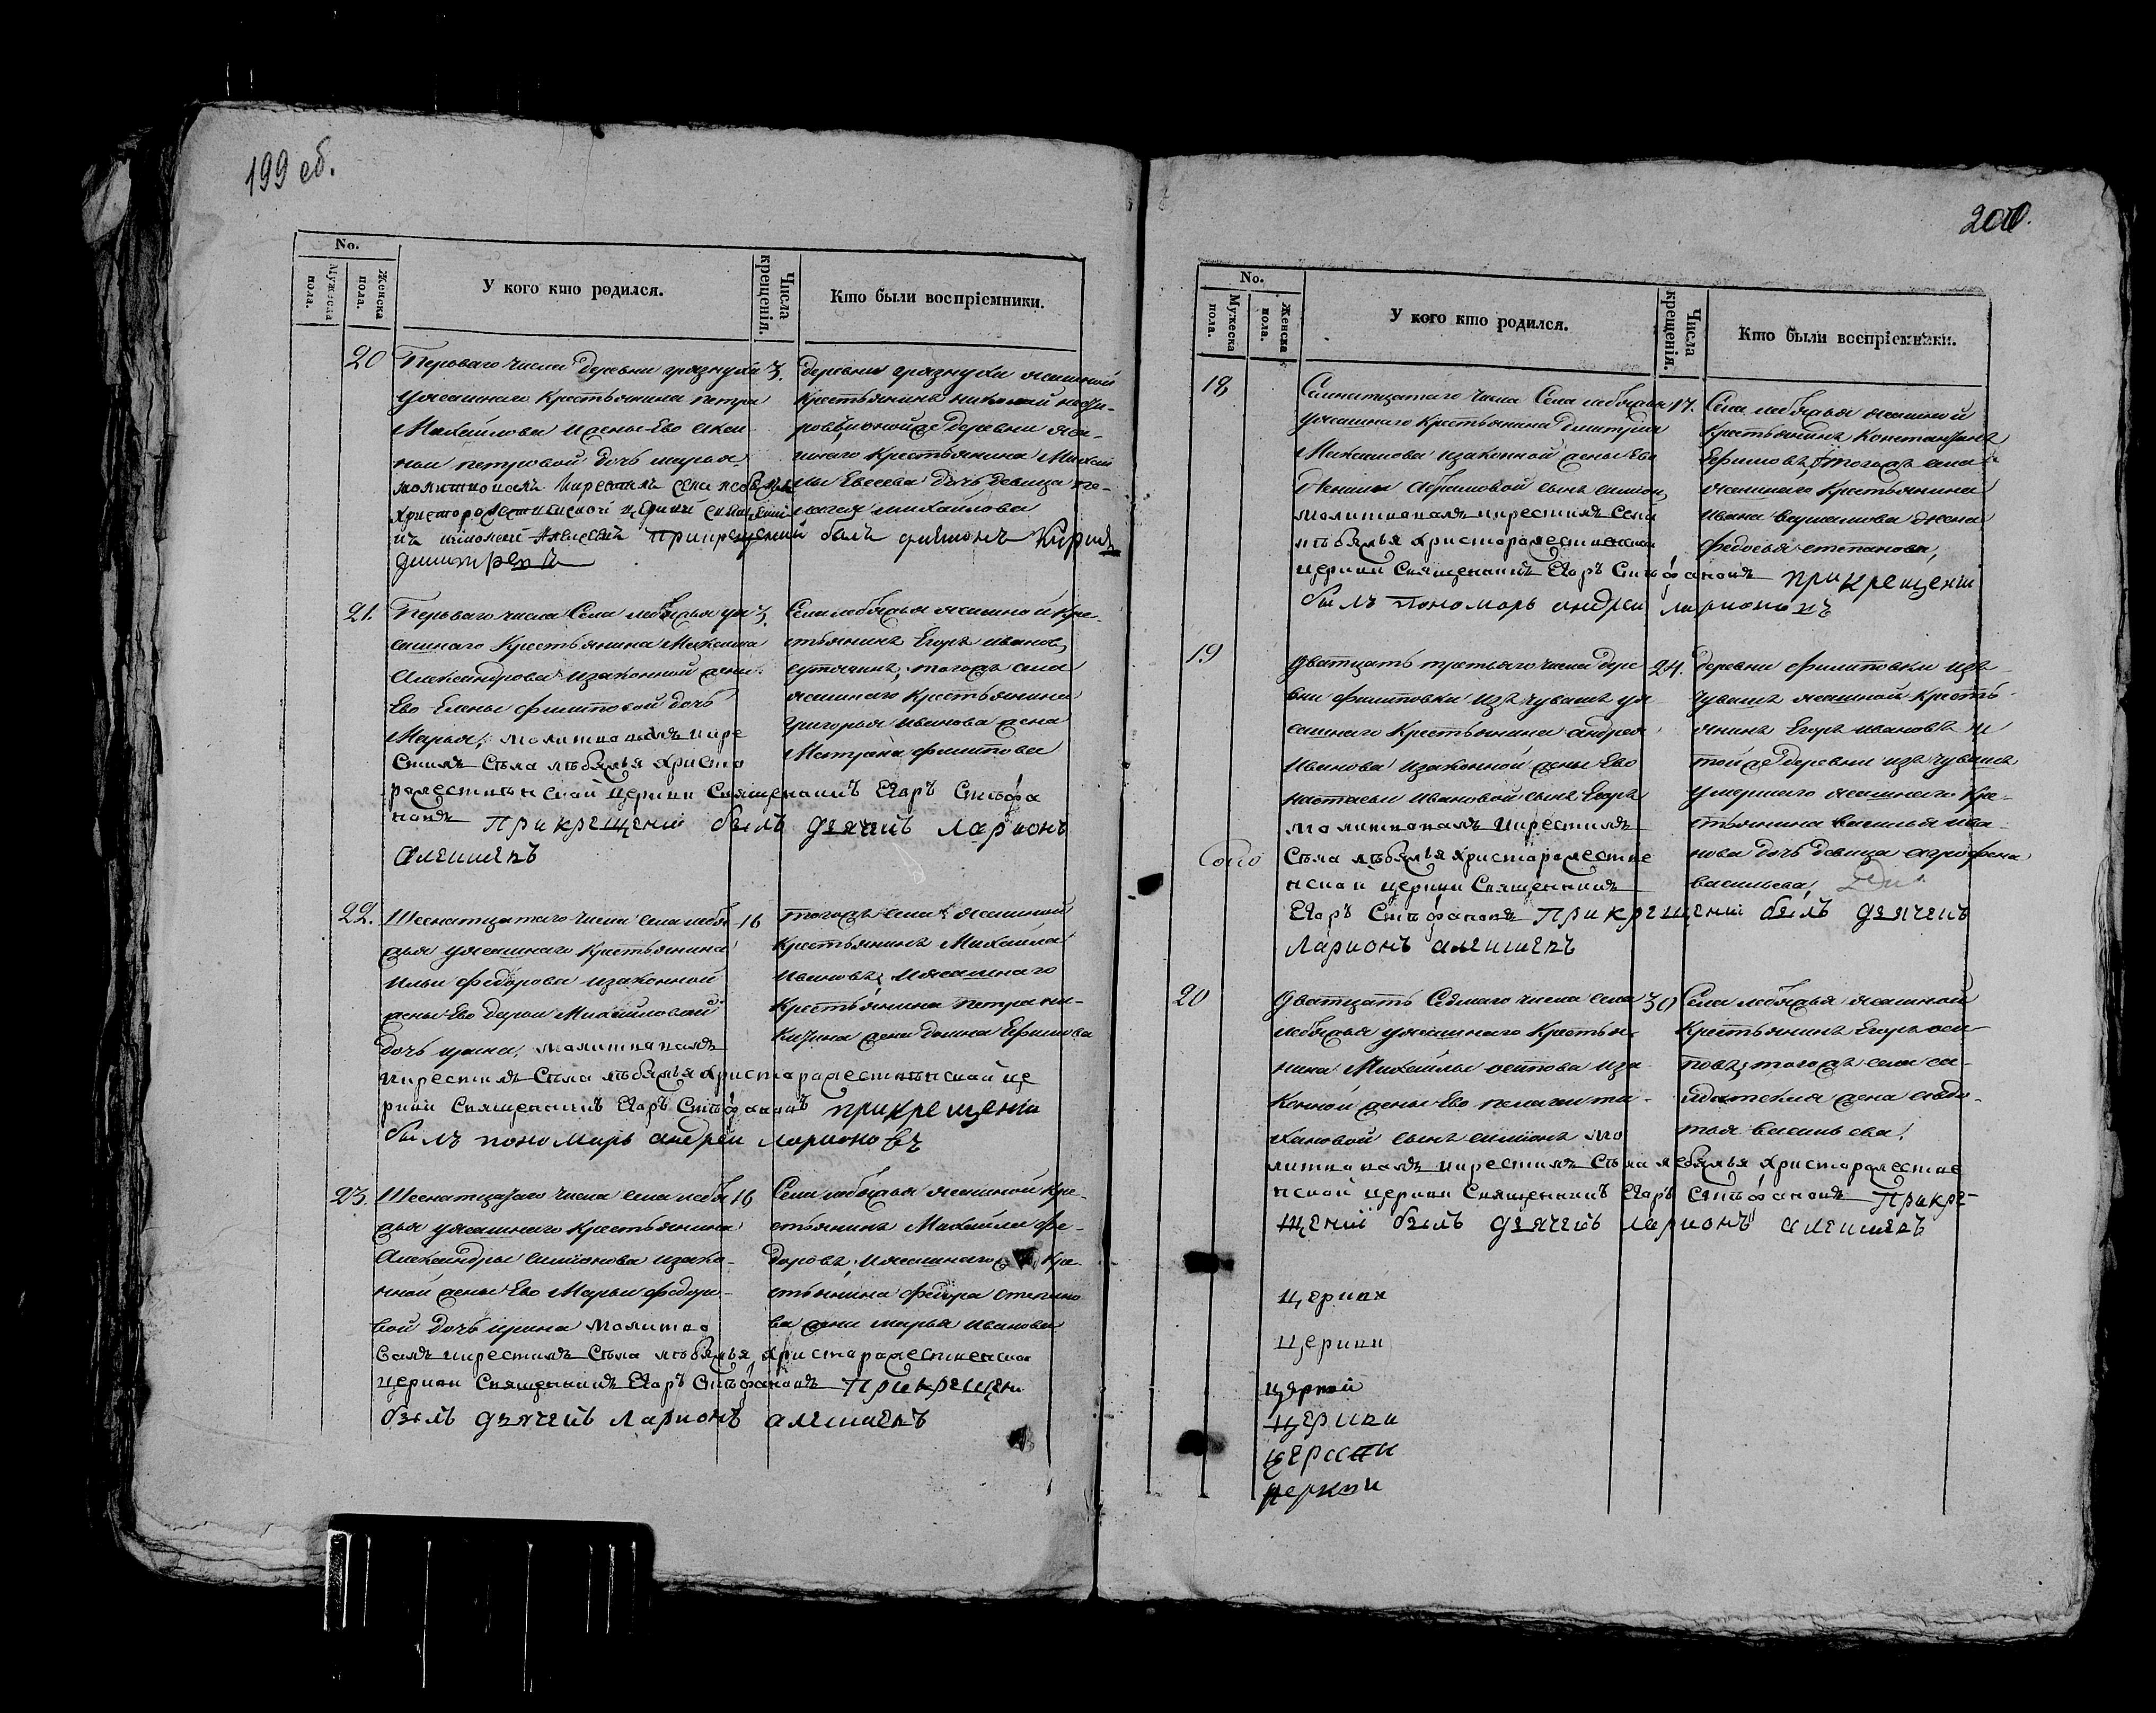 199 об.
No.
Мужеска пола.
Женска пола.
У кого кто родился.
Числа крещенія.
Кто были воспріемники.
20 Перьваго числа деревни грязнухи 3.
уясашнаго Крестьянина петра
Михайлова ижены Ево
петровой дочь марья.
молитвовалъ икрестилъ села
христорожественской церкви
Алексей прикрещении былъ дьяконъ
деревни грязнухи ясашной
Крестьянинъ николай
деревни яса-
шнаго Крестьянина Михай
лы Евсеева дочь девица пе-
лагея михайлова
21. Перьваго числа Села лебяжья уя 3.
сашнаго Крестьянина Максима
Александрова изаконной жены
Ево Елены филиповой дочь
Марья, молитвовалъ икре
стилъ Села лебяжья Христо
рожественской церкви Священникъ Егоръ Стефа
новъ прикрещении былъ дьячекъ Ларионъ
алексиевъ
Села лебяжья ясашной Кре-
стьянинъ Егоръ иванов
тогожъ села
ясашнаго Крестьянина
Григорья иванова жена
Матрона филипова
22. Шеснатцатаго числа села лебя 16
жья уясашнаго Крестьянина
ильи федорова изаконной
жены Ево дарьи Михайловой
дочь ирина, молитвовалъ
икрестилъ Села лебяжья Христорожественской це
ркви Священникъ Егоръ Стефановъ прикрещении
былъ пономарь андреи ларионовъ
тогожъ села ясашной
Крестьянинъ Михайла
ивановъ, иясашнаго
Крестьянина петра ни-
китина жена домна Ефимова
23. Шеснатцатаго числа села лебя 16
жья уясашнаго Крестьянина
Александры симионова изако-
нной жены Ево Марьи федоро-
вой дочь ирина молитво
валъ икрестилъ Села лебяжья Христорожественской
церкви Священникъ Егоръ Стефановъ прикрещени
былъ дьячекъ Ларионъ алексиевъ
Села лебяжья ясашной кре-
стьянинъ Михайла фе-
доровъ, иясашнаго Кре-
стьянина федора степано
ва жена марья иванова
200.
No.
Мужеска пола.
Женска пола.
У кого кто родился.
Числа крещенія.
Кто были воспріемники.
18 Семнатцатаго числа Села лебяжья 17.
уясашнаго Крестьянина Дмитрия
Максимова изаконной жены Ево
абрамовой сынъ симион,
молитвовалъ икрестилъ Села
лебяжья Христорожественской
церкви Священникъ Егоръ Стефановъ прикрещени
былъ пономарь андреи ларионовъ
Села лебяжья ясашной
Крестьянинъ Константинъ
Ефимовъ, тогожъ села
ясашнаго Крестьянина
ивана жена
федосья степанова,
19 Дватцать третьяго числа дере 24.
вни филиповки изъ чувашъ уя
сашнаго Крестьянина андрея
иванова изаконной жены Ево
настасьи ивановой сынъ Егоръ
молитвовалъ икрестилъ
Села лебяжья Христорожестве
нской церкви Священникъ
Егоръ Стефановъ прикрещени былъ дьячекъ
Ларионъ алексиевъ
деревни филиповки изъ
чувашъ ясашной Крестьь-
янинъ Егоръ ивановъ и
тойже деревни изъ чувашъ
умершаго ясашнаго Кре-
стьянина василья ива-
нова дочь девица агрофена
васильева,
20 Дватцать Седмаго числа села 30
лебяжья уясашнаго Крестья-
нина Михайлы осипова иза
конной жены Ево пелагеи ти-
хановой сынъ симионъ мо
литвовалъ икрестилъ Села лебяжья Христорожестве
нской церкви Священникъ Егоръ Стефановъ прикре-
щении былъ дьячекъ ларионъ алексиевъ
Села лебяжья ясашной
Крестьянинъ Егоръ оси-
повъ, тогожъ села са-
лдатская жена авдо-
тья васильева,
церкви
церкви
церкви
церкви
церкви
церкви